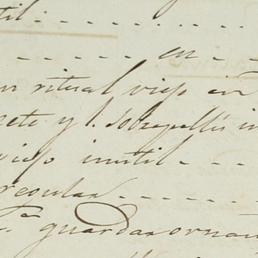 til - - - - - - -
- - - - - - en - -
un ritual viejo in
ete y 1. sobrepellis in
viejo inutil - - - -
regular - - - - - -
guardar orna